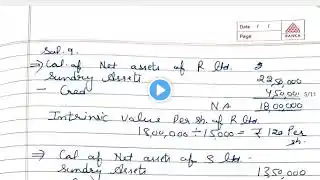 Date / /
Page
RANKA
Sol. 9.
⇒ Cal. of Net assets of R ltd. ₹
Sundry Assets 2250,000
- Cred 450,000
NA 18,00,000
Intrinsic Value Per sh. of R ltd
18,00,000 ÷ 15000 = ₹ 120 Per
sh.
⇒ Cal of Net assets of S ltd -
Sundry Assets 1350,000